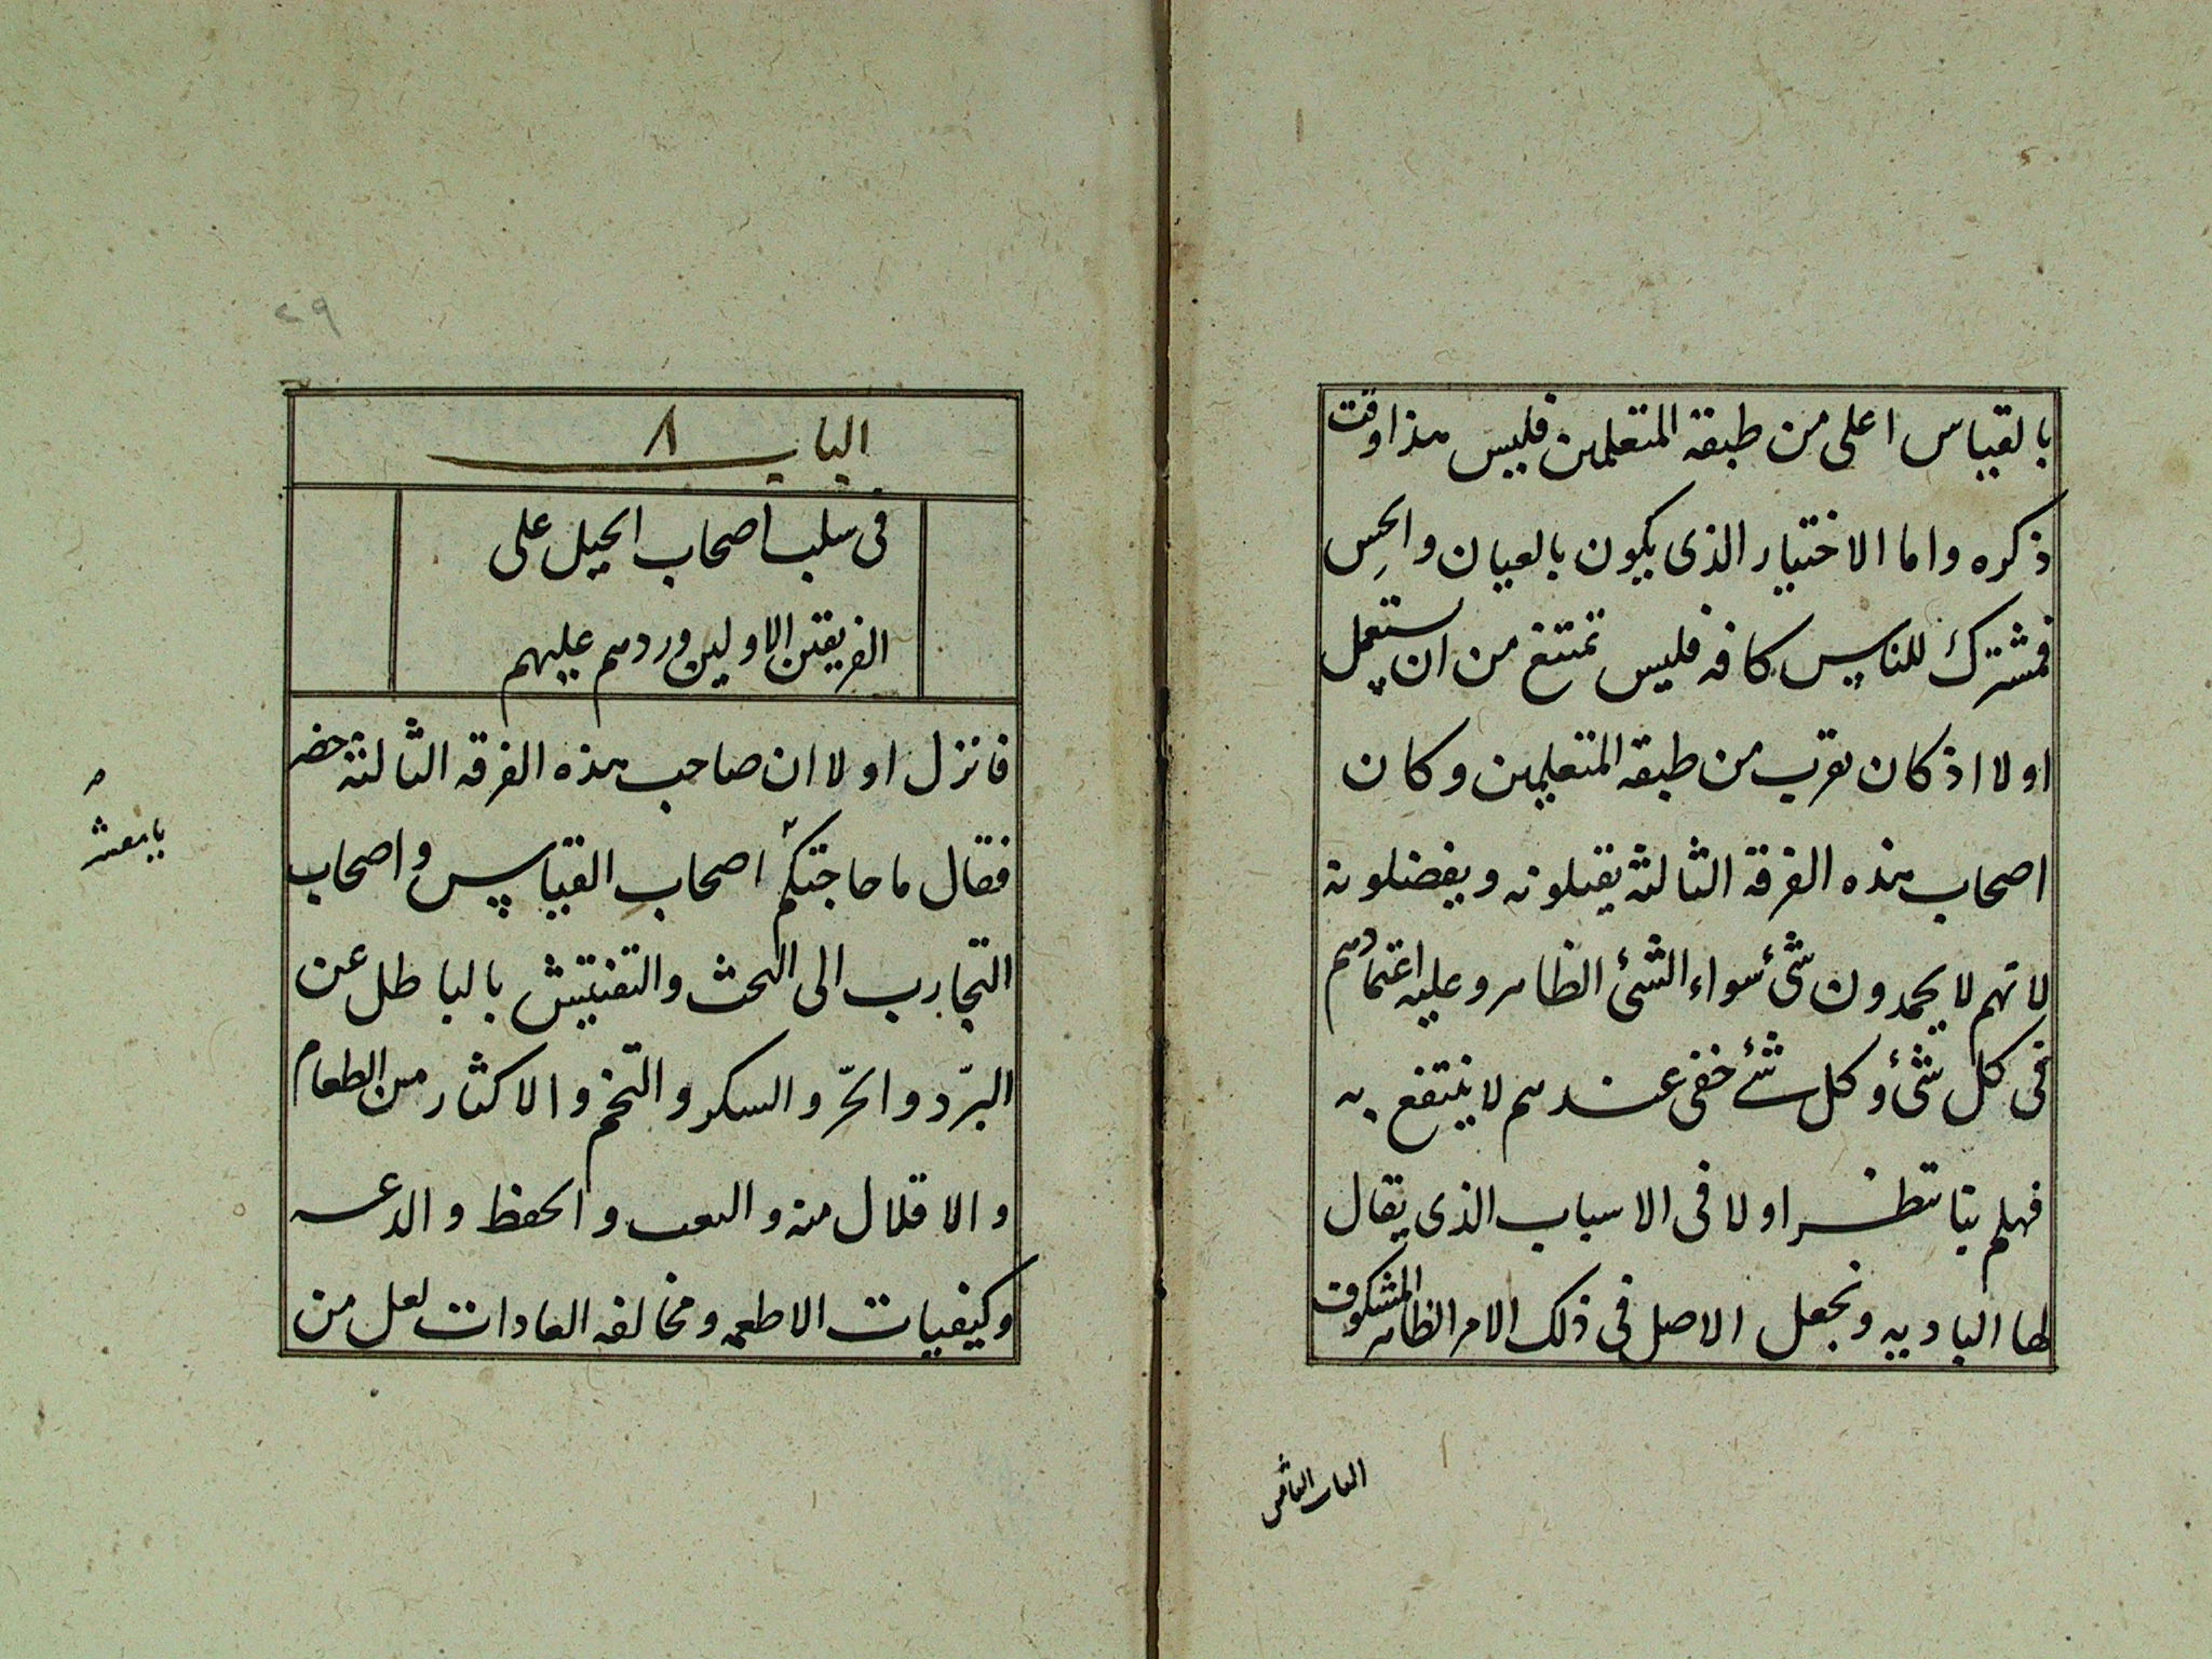 بالقياس اعلى من طبقة المتعلمين فليس هذا وقت
ذكره واما الاختيار الذى يكون بالعيان والحِس
فمشترك للناس كافه فليس تمتنع من ان يستعمل
اولا اذ كان يقرب من طبقه المتعلمين وكان
اصحاب هذه الفرقة الثالثة يقبلونه ويفضلونه
لانهم لا يحمدون شئ سواء الشئ الظاهر وعليه اعتمادهم
فى كل شئ وكل شئ خفى عندهم لا ينتفع به
فهلم بنا ننظر اولا فى الاسباب الذى يقال
لها الباديه ونجعل الاصل فى ذلك الامر الظاهر المشكوف
الباب الثامن
٢٩
الباب ٨
فى سلب اصحاب الحيل على
الفريقين الاولين وردهم عليهم
فانزل اولا ان صاحب هذه الفرقه الثالثة حضر
فقال ما حاجتكم اصحاب القياس واصحاب
التجارب الى البحث والتفتيش بالباطل عن
البرّد والحرّ والسكر والتخم والاكثار من الطعام
والاقلال منه والتعب والحفظ والدعه
وكيفيات الاطعمه ومخالفه العادات لعل من
يا معشر